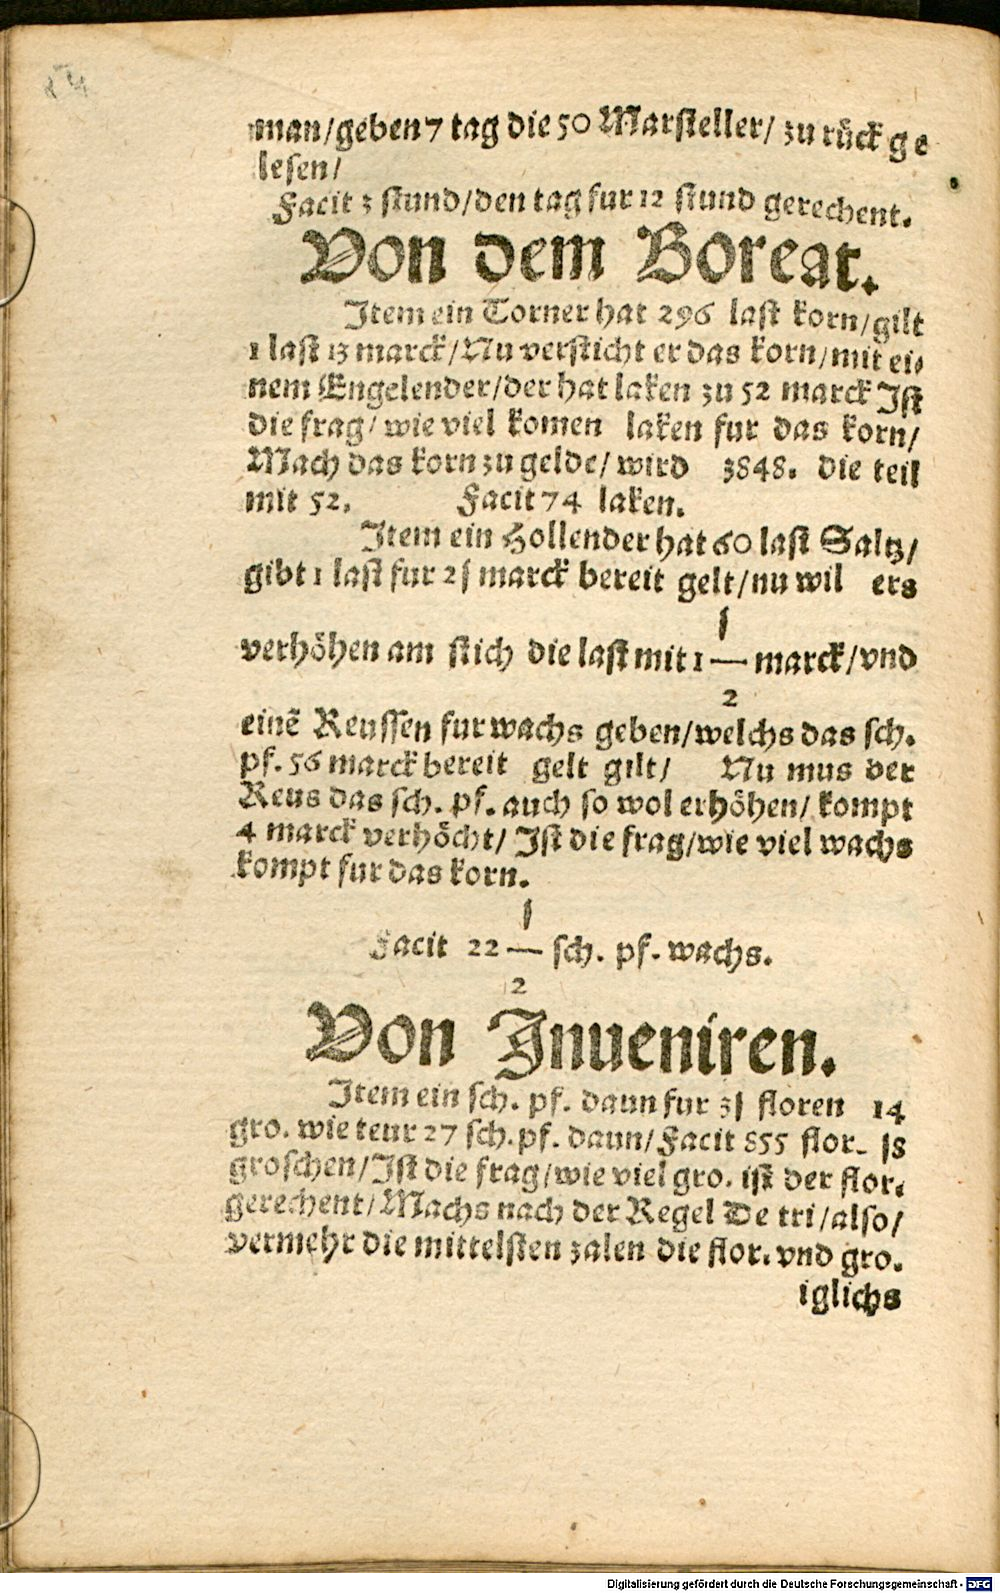 man/geben 7 tag die 50 Marsteller/ zu rück ge
lesen/
Facit 3 stund/den tag fur 12 stund gerechent.
Von dem Boreat.
Item ein Torner hat 296 last korn/gilt
1 last 13 marck/Nu versticht er das korn/mit ei-
nem Engelender/der hat laken zu 52 marck Ist
die frag/ wie viel komen laken fur das korn/
Mach das korn zu gelde/ wird 3848. die teil
mit 52. Facit 74 laken.
Item ein Hollender hat 60 last Saltz/
gibt 1 last fur 21 marck bereit gelt/nu wil ers
1
verhöhen am stich die last mit 1 — marck/vnd
2
einē Reussen fur wachs geben/welchs das sch.
pf. 56 marck bereit gelt gilt/ Nu mus der
Reus das sch. pf. auch so wol erhöhen/ kompt
4 marck verhöcht/ Ist die frag/wie viel wachs
kompt fur das korn.
1
Facit 22 — sch. pf. wachs.
2
Von Jnueniren.
Item ein sch. pf. daun fur 31 floren 14
gro. wie teur 27 sch. pf. daun/Facit 855 flor. 18
groschen/Ist die frag/wie viel gro. ist der flor.
gerechent/Machs nach der Regel De tri/also/
vermehr die mittelsten zalen die flor. vnd gro.
iglichs
Digitalisierung gefördert durch die Deutsche Forschungsgemeinschaft - DFG